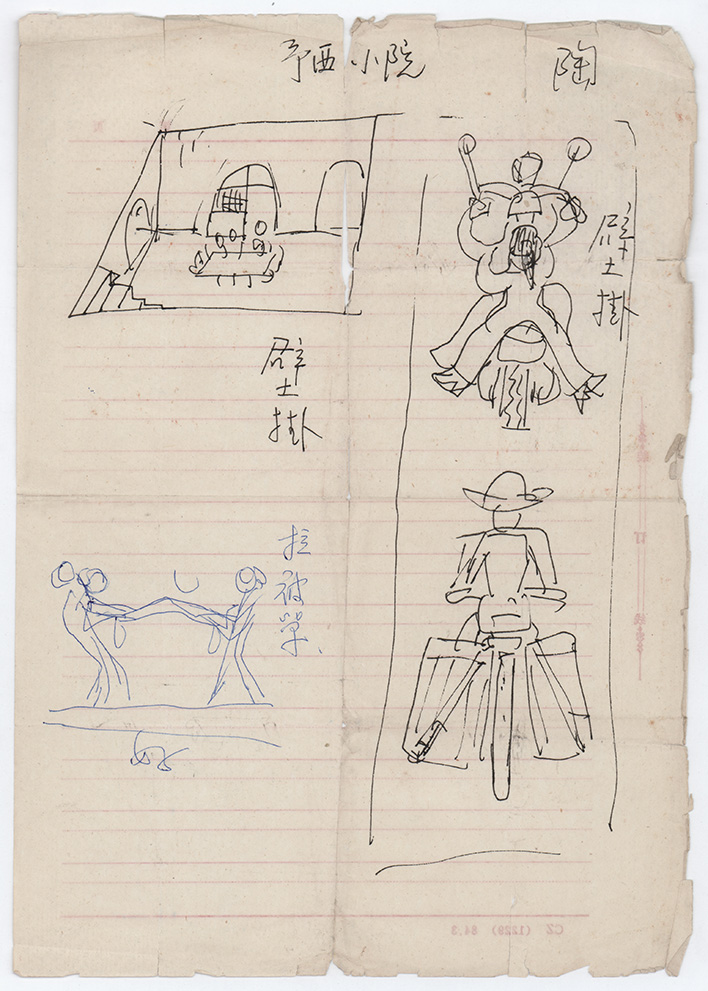 予西小院
陶
壁掛
壁掛
拉被單、
CZ (1229) 84.3